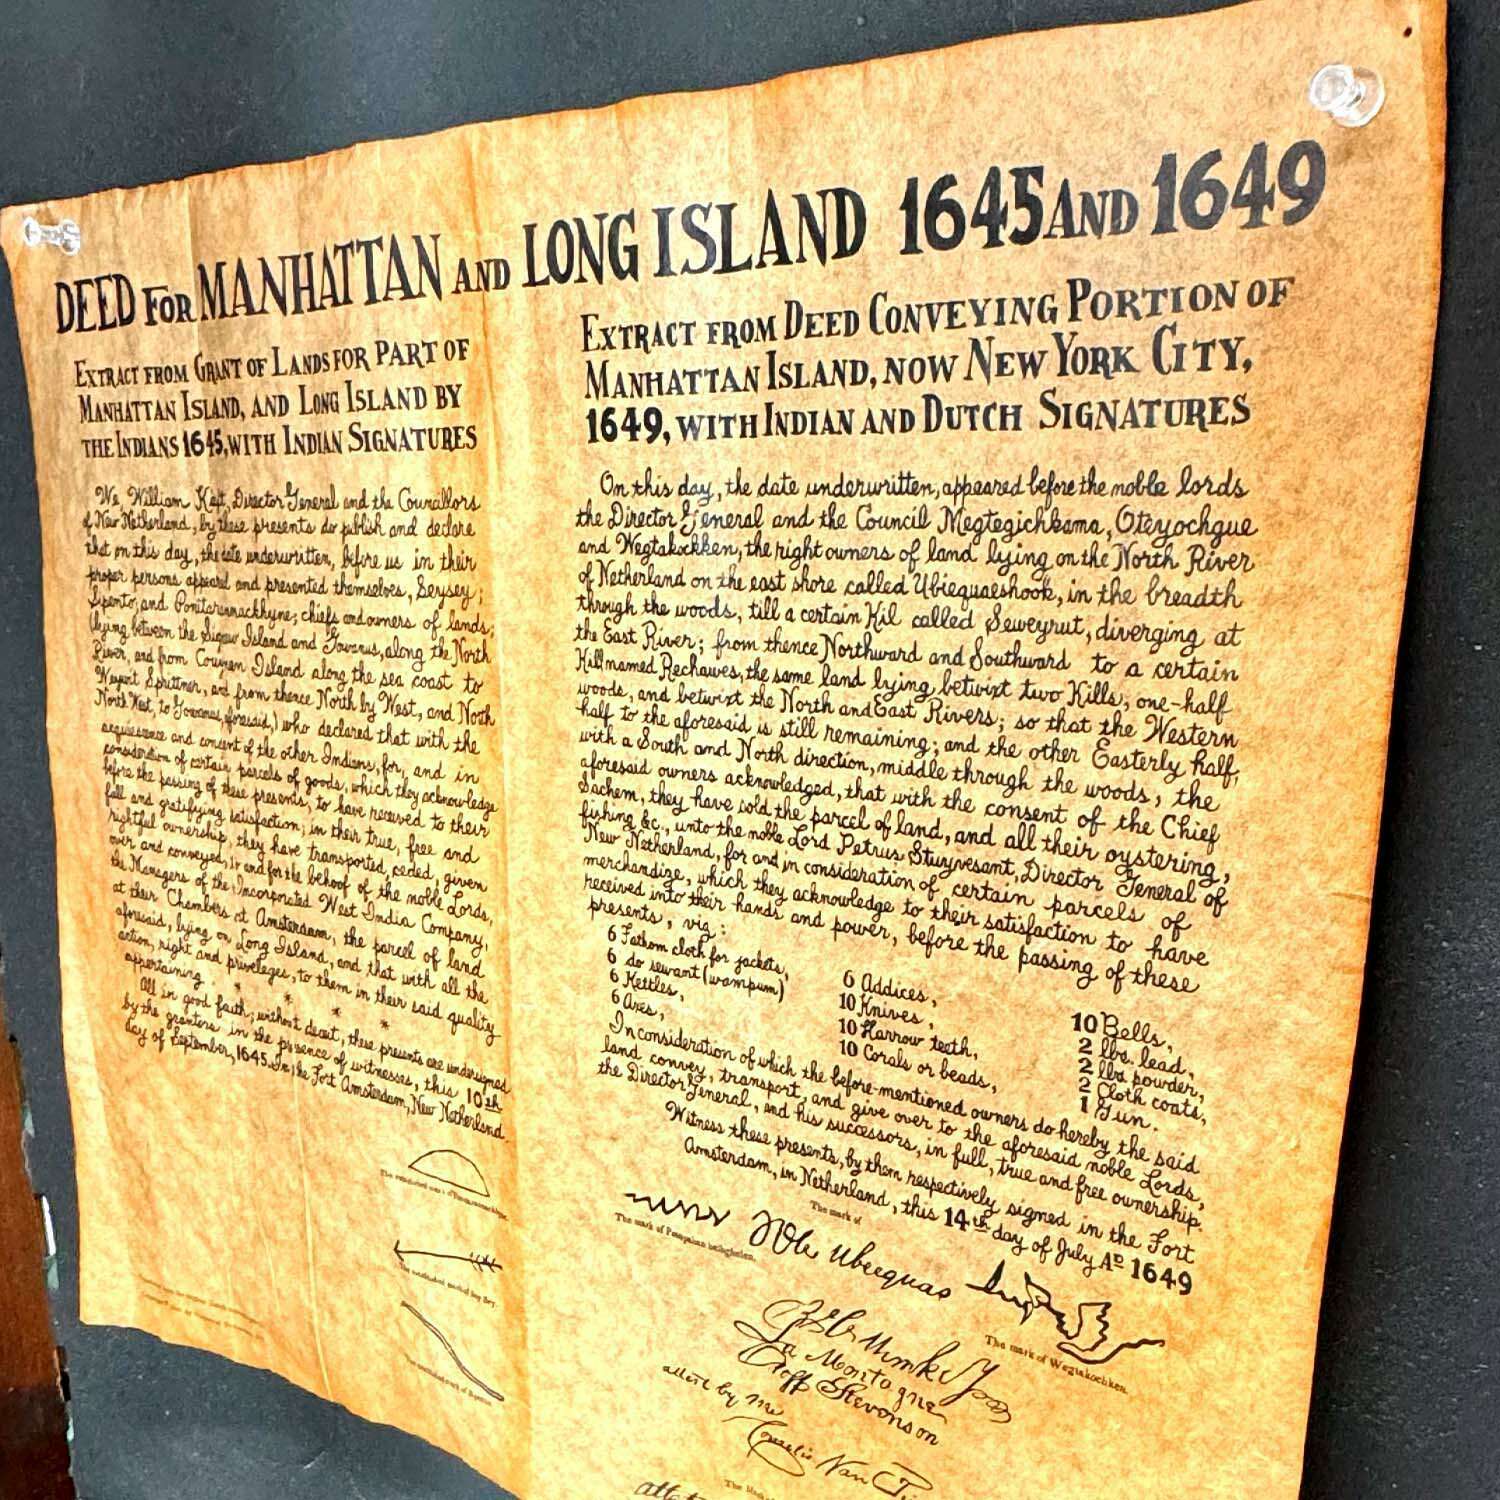 DEED FOR MANHATTAN AND LONG ISLAND 1645 AND 1649
EXTRACT FROM GRANT OF LANDS FOR PART OF
MANHATTAN ISLAND, AND LONG ISLAND BY
THE INDIANS 1645, WITH INDIAN SIGNATURES
We, William Kieft, Director General and the Councillors
of New Netherland, by these presents do publish and declare
that on this day, the date underwritten, before us in their
proper persons appeared and presented themselves, Seysey;
Sipento, and Ponitarannackhyne; chiefs and owners of lands;
(lying between the Island and Gowanus, along the North
River, and from Island along the sea coast to
and from thence North by West, and North
North West, to Gowanus, aforesaid,) who declared that with the
acquiescence and consent of the other Indians, for, and in
consideration of certain parcels of goods, which they acknowledge
before the passing of these presents, to have received to their
full and gratifying satisfaction; in their true, free and
rightful ownership, they have transported, ceded, given
over and conveyed, to and for the behoof of the noble Lords,
the Managers of the Incorporated West India Company,
at their Chambers at Amsterdam, the parcel of land
aforesaid, lying on Long Island, and that with all the
action, right and privileges, to them in their said quality
appertaining. * * * *
All in good faith; without deceit, these presents are undersigned
by the grantors in the presence of witnesses, this 10th
day of September, 1645. In the Fort Amsterdam, New Netherland.
EXTRACT FROM DEED CONVEYING PORTION OF
MANHATTAN ISLAND, NOW NEW YORK CITY,
1649, WITH INDIAN AND DUTCH SIGNATURES
On this day, the date underwritten, appeared before the noble lords
the Director General and the Council Megtegichkama, Oteyochgue
and Wegtakockken, the right owners of land lying on the North River
of Netherland on the east shore called Ubiequaeshook, in the breadth
through the woods, till a certain Kil called Seweyrut, diverging at
the East River; from thence Northward and Southward to a certain
Kill named Rechawes, the same land lying betwixt two Kills, one-half
woods, and betwixt the North and East Rivers; so that the Western
half to the aforesaid is still remaining; and the other Easterly half,
with a South and North direction, middle through the woods, the
aforesaid owners acknowledged, that with the consent of the Chief
Sachem, they have sold the parcel of land, and all their oystering,
fishing &c., unto the noble Lord Petrus Stuyvesant, Director General of
New Netherland, for and in consideration of certain parcels of
merchandize, which they acknowledge to their satisfaction to have
received into their hands and power, before the passing of these
presents, viz:
6 Fathom cloth for jackets,
6 do sewant (wampum)
6 Kettles,
6 Axes,
6 Addices,
10 Knives,
10 Harrow teeth,
10 Corals or beads,
10 Bells,
2 lbs. lead,
2 lbs powder,
2 Cloth coats,
1 Gun.
In consideration of which the before-mentioned owners do hereby the said
land convey, transport, and give over to the aforesaid noble Lords,
the Director General, and his successors, in full, true and free ownership.
Witness these presents, by them respectively signed in the Fort
Amsterdam, in Netherland, this 14th day of July AD 1649
The mark of
The mark of
The mark of Wegtakochken.
La Montagne
Stevenson
attest by me
Cornelis Van